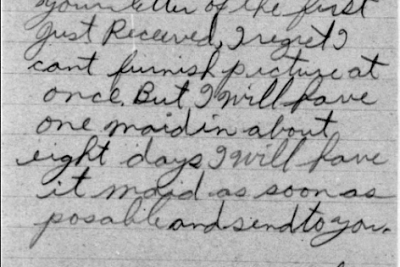 your letter of the first
Just Received, I regret I
cant furnish picture at
once. But I will have
one maid in about
eight days I will have
it maid as soon as
posable and send to you.